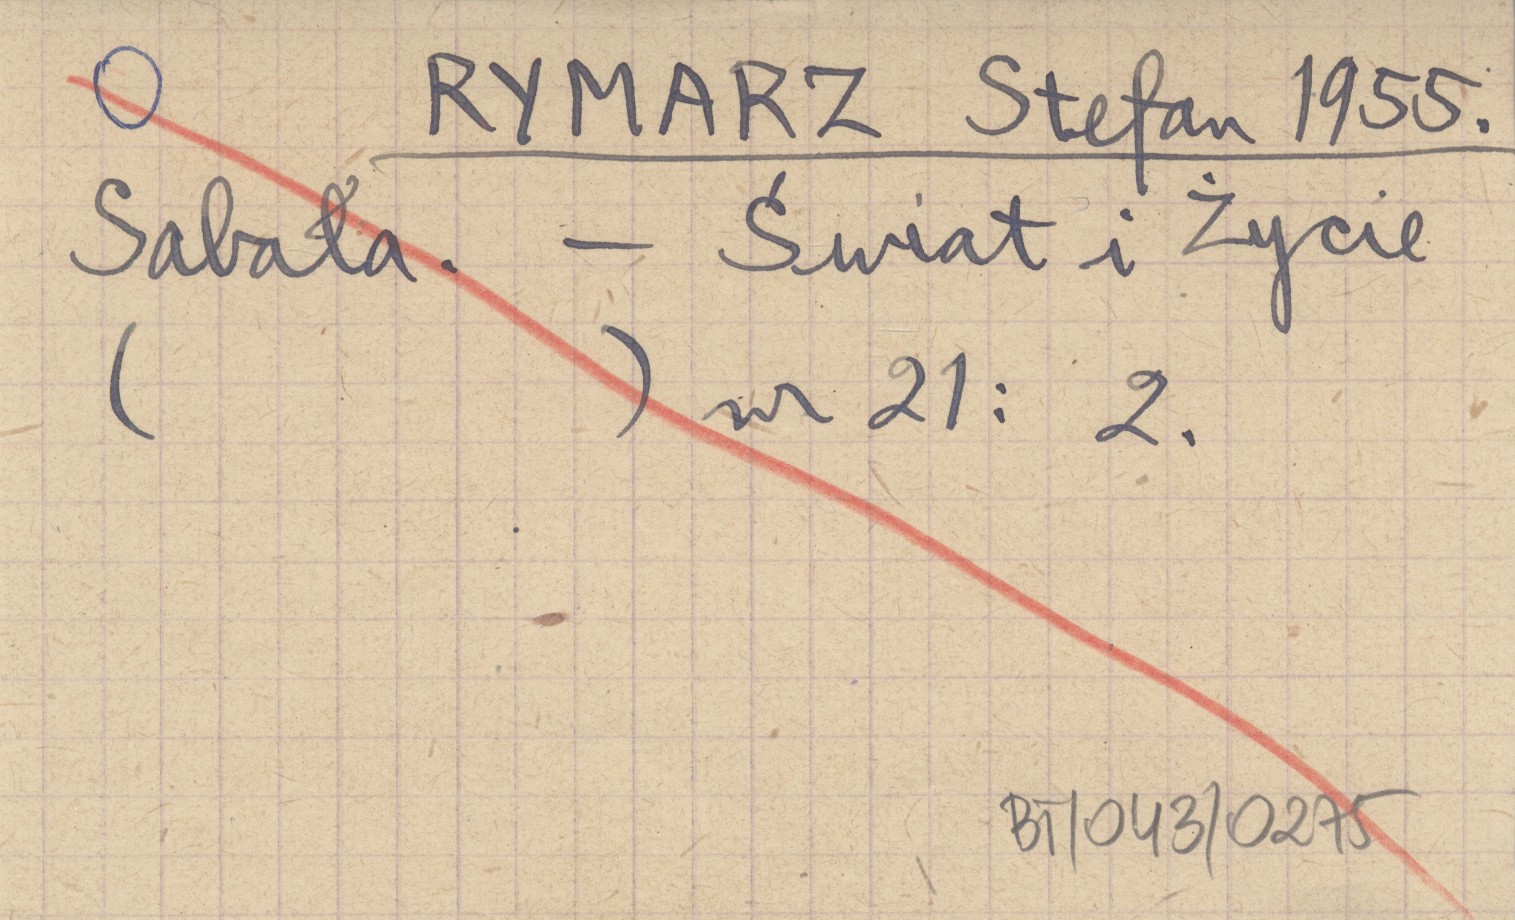 RYMARZ Stefan 1955.
Sabała. — Świat i Życie
( ) nr 21: 2.
BT/043/0275